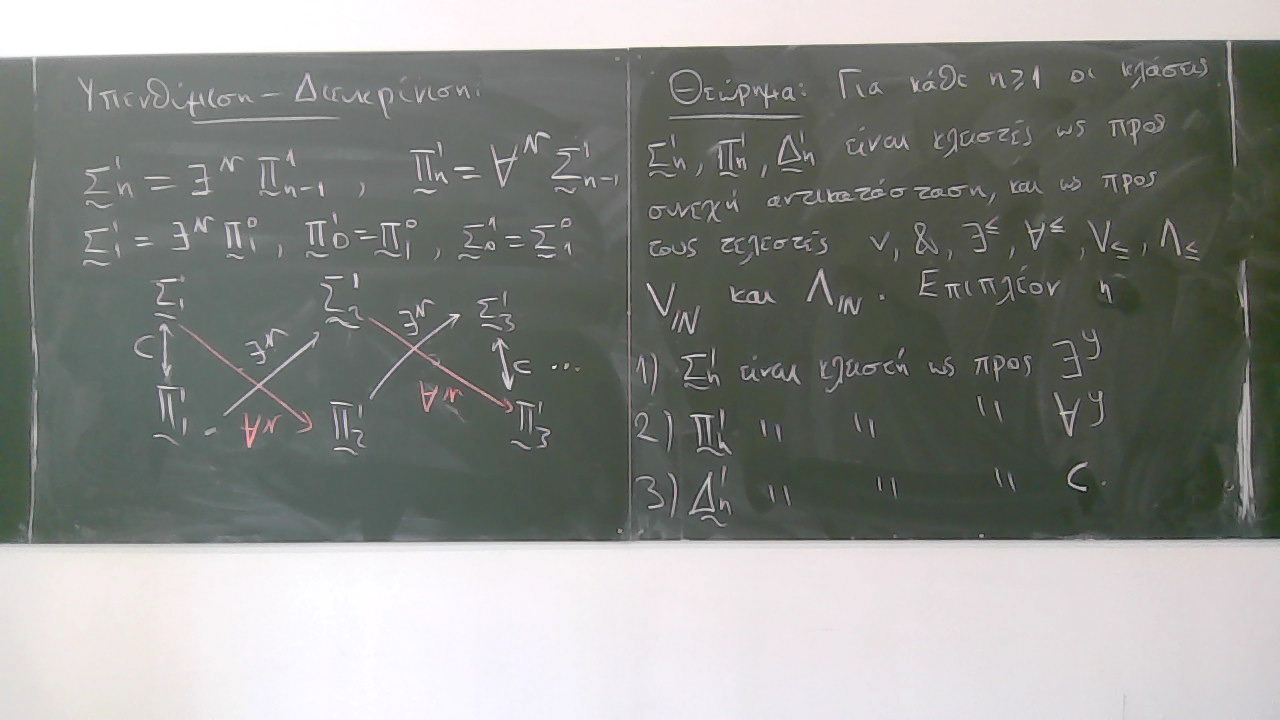 Υπενθύμιση – Διευκρίνιση:
Σ¹ₙ = ∃ᴺ Π¹ₙ₋₁ , Π¹ₙ = ∀ᴺ Σ¹ₙ₋₁
Σ¹₁ = ∃ᴺ Π⁰₁ , Π¹₀ = Π⁰₁ , Σ¹₀ = Σ⁰₁
Σ¹₁ Σ¹₂ Σ¹₃
c ∃ᴺ ∃ᴺ c ...
∀ᴺ ∀ᴺ
Π¹₁ Π¹₂ Π¹₃
Θεώρημα: Για κάθε n ≥ 1 οι κλάσεις
Σ¹ₙ , Π¹ₙ , Δ¹ₙ είναι κλειστές ως προς
συνεχή αντικατάσταση, και ως προς
τους τελεστές ∨, &, ∃^≤ , ∀^≤ , ⋁_≤ , ⋀_≤
⋁_ℕ και ⋀_ℕ . Επιπλέον η
1) Σ¹ₙ είναι κλειστή ως προς ∃^𝒴
2) Π¹ₙ " " " ∀^𝒴
3) Δ¹ₙ " " " c.